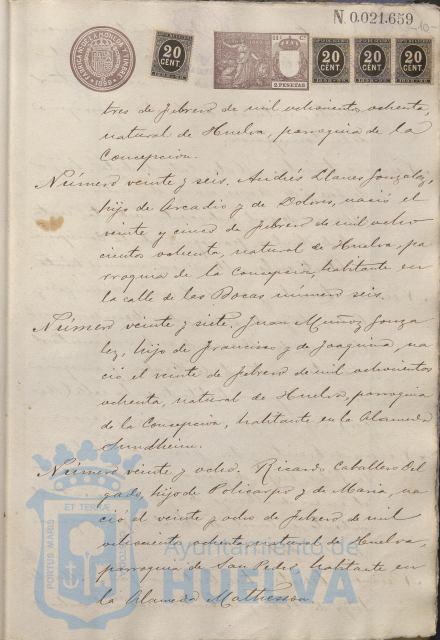 N. 0.021.659
-10-
FABRICA NDE LA MONEDA Y TIMBRE
1899
20
CENT.
11ª Cª
2 PESETAS
20
CENT.
20
CENT.
20
CENT.
tres de febrero de mil ochocientos ochenta,
natural de Huelva, parroquia de la
Concepcion.
Número veinte y seis. Andrés Llanes Gonzalez,
hijo de Arcadio y de Dolores, nació el
veinte y cinco de febrero de mil ocho
cientos ochenta, natural de Huelva, pa
rroquia de la Concepcion, habitante en
la calle de las Bocas número seis.
Número veinte y siete. Juan Muñoz Gonza
lez, hijo de Francisco y de Joaquina, na
ció el veinte de febrero de mil ochocientos
ochenta, natural de Huelva, parroquia
de la Concepcion, habitante en la Alameda
Sundheim.
Número veinte y ocho. Ricardo Caballero Del
gado, hijo de Policarpo y de Maria, na
ció el veinte y ocho de febrero de mil
ochocientos ochenta natural de Huelva,
parroquia de San Pedro, habitante en
la Alameda Mathesson
PORTUS MARIS
ET TERRÆ
CUSTODIA
Ayuntamiento de
HUELVA